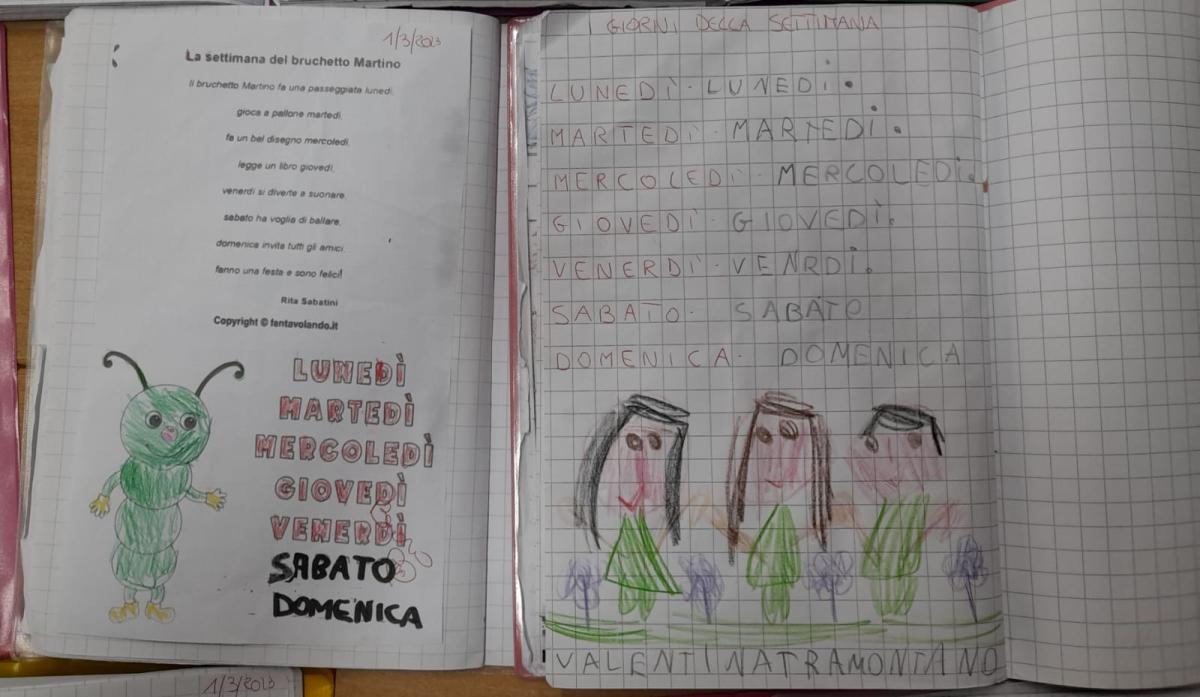 1/3/2023
La settimana del bruchetto Martino
Il bruchetto Martino fa una passeggiata lunedì,
gioca a pallone martedì,
fa un bel disegno mercoledì,
legge un libro giovedì,
venerdì si diverte a suonare,
sabato ha voglia di ballare,
domenica invita tutti gli amici
fanno una festa e sono felici!
Rita Sabatini
Copyright © fantavolando.it
LUNEDÌ
MARTEDÌ
MERCOLEDÌ
GIOVEDÌ
VENERDÌ
SABATO
DOMENICA
1/3/2023
I GIORNI DELLA SETTIMANA
LUNEDÌ · LUNEDÌ.
MARTEDÌ · MARTEDÌ.
MERCOLEDÌ · MERCOLEDÌ.
GIOVEDÌ · GIOVEDÌ.
VENERDÌ · VENRDÌ.
SABATO · SABATO
DOMENICA · DOMENICA
VALENTINATRAMONTANO